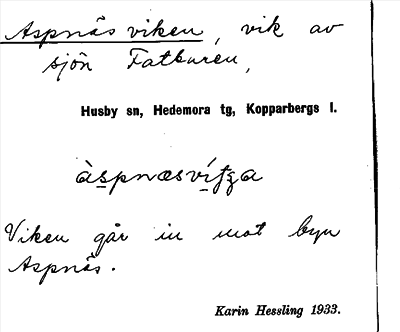 Aspnäsviken, vik av
sjön Fatburen,
Husby sn, Hedemora tg, Kopparbergs l.
Viken går in mot byn
Aspnäs.
Karin Hessling 1933.